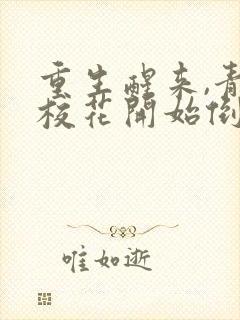 重生醒来,青
校花開始倒
唯如逝